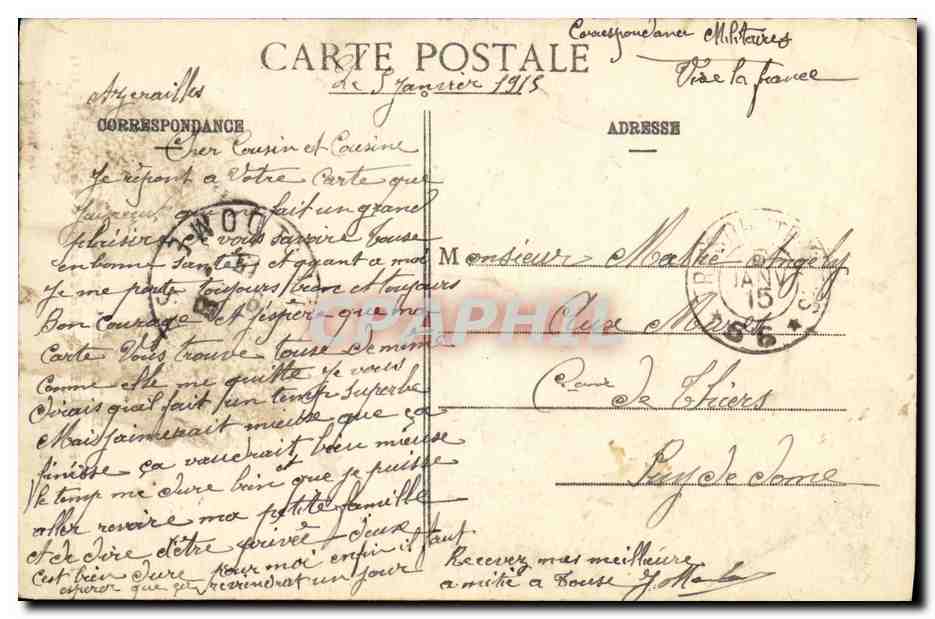 Correspondance Militaires
CARTE POSTALE
Vive la france
Azerailles
Le 5 Janvier 1915
CORRESPONDANCE
ADRESSE
Cher Cousin et Cousine
Je répont a Votre Carte que
qui fait un grand
plaisir de vous savoire touse
en bonne santée et quant a moi
Je me porte toujours bien et toujours
Bon courage et j'espère que ma
Carte Vous trouve touse de meme
comme elle me quitte Je vous
dirais qu'il fait un temp superbe
Mais j'aimerait mieuse que ça
finisse ça vaudrait bien mieuse
et
le temp me dure bien que je puisse
aller revoire ma petite famille
A de dire d'être privée d'eux
c'est bien dure pour moi enfin il faut
esperer que ça reviendrat un jour
Monsieur Mathé Angely
Aux Maret
Cne de Thiers
Puy de dome
Recevez mes meillieure
amitié a Touse
JANV
15
56
CPAPHIL